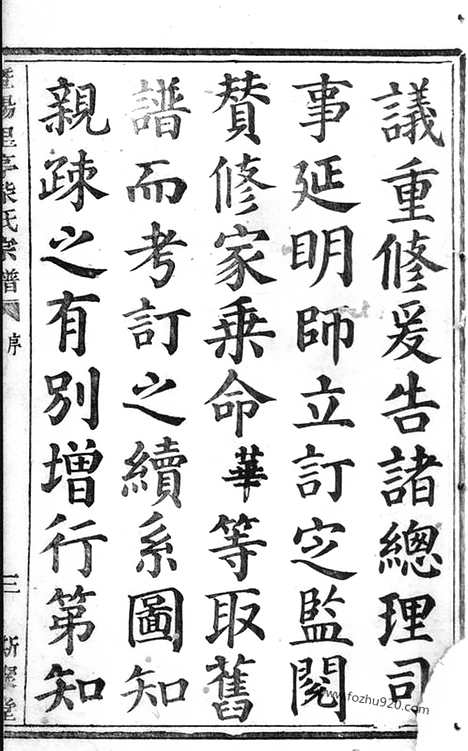 議重修爰告諸總理司
事延明師立訂定監閱
贊修家乗命華等取舊
譜而考訂之續系圖知
親疎之有别增行第知
暨陽里亭柴氏宗譜 序 三
www.fozhu920.com